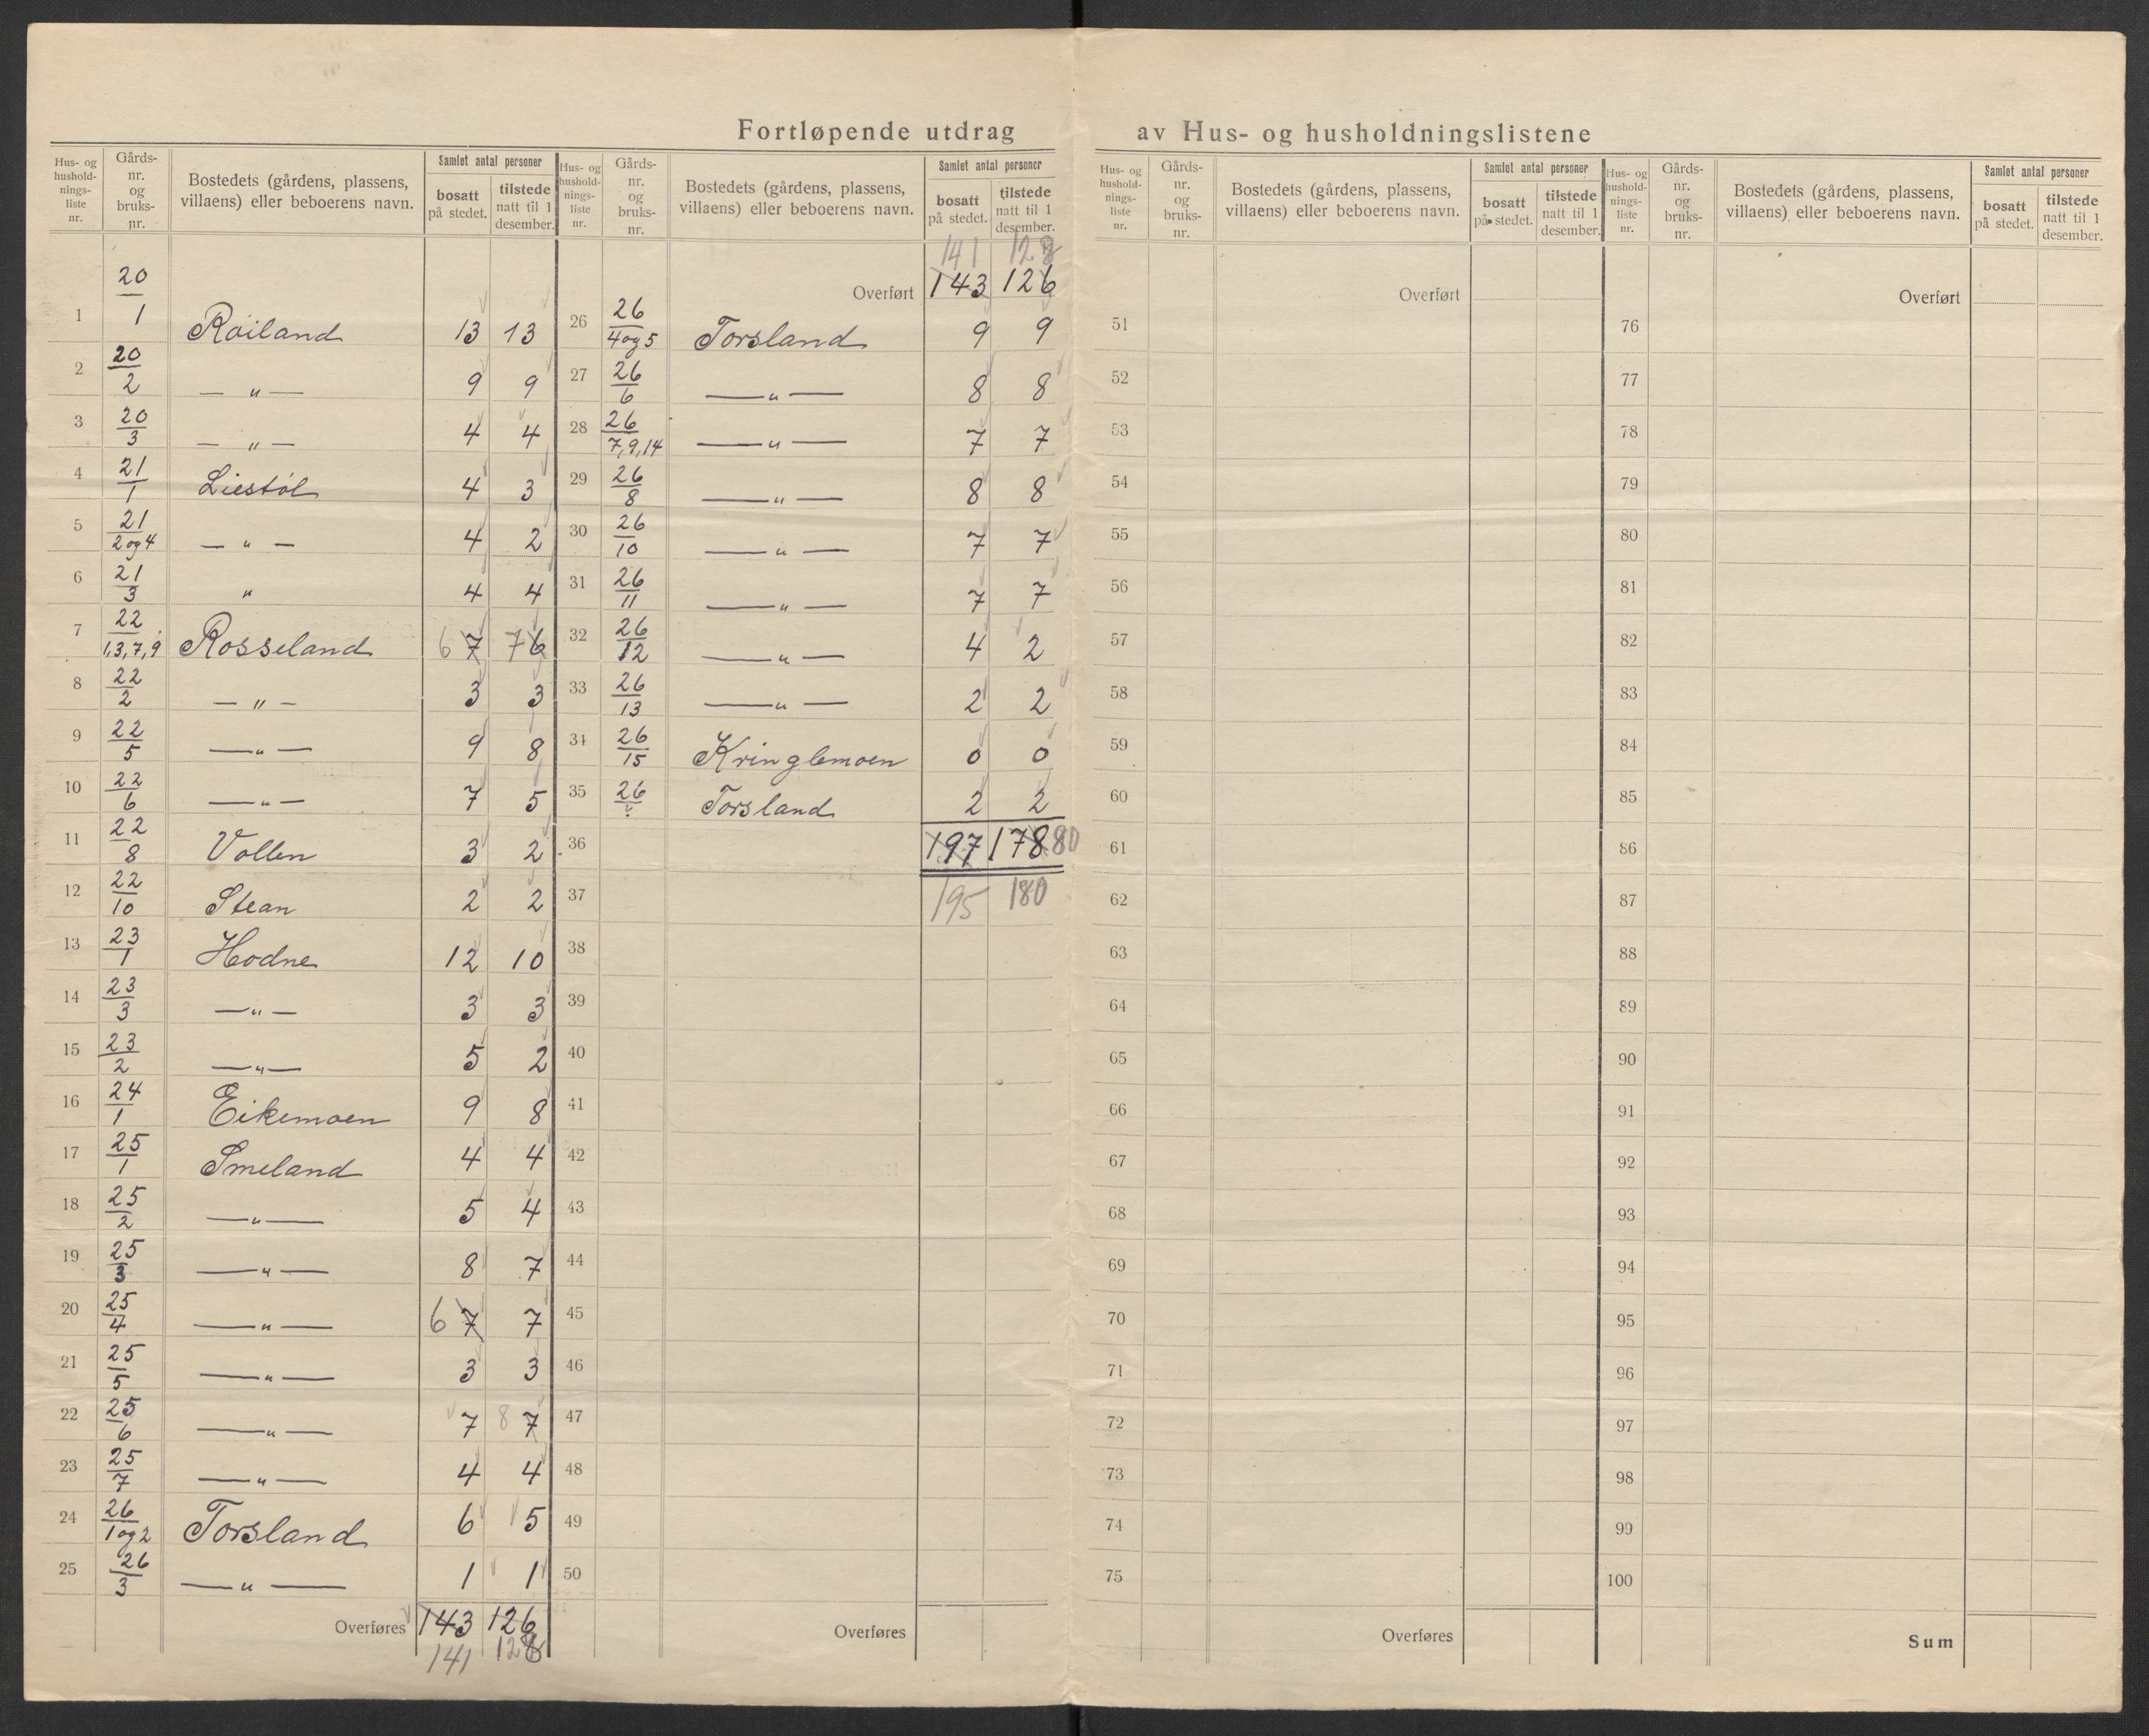 Fortløpende utdrag av Hus- og husholdningslistene
Hus- og hushold-nings-liste nr. | Gårds-nr. og bruks-nr. | Bostedets (gårdens, plassens, villaens) eller beboerens navn. | Samlet antal personer bosatt på stedet. | tilstede natt til 1 desember.
1 20/1 Røiland 13 13
2 20/2 — " — 9 9
3 20/3 — " — 4 4
4 21/1 Liestøl 4 3
5 21/2 og 4 — " — 4 2
6 21/3 " 4 4
7 22/1,3,7,9 Rosseland 6 7 7 6
8 22/2 — " — 3 3
9 22/5 — " — 9 8
10 22/6 — " — 7 5
11 22/8 Vollen 3 2
12 22/10 Stean 2 2
13 23/1 Hodne 12 10
14 23/3 — " — 3 3
15 23/2 — " — 5 2
16 24/1 Eikemoen 9 8
17 25/1 Smeland 4 4
18 25/2 — " — 5 4
19 25/3 — " — 8 7
20 25/4 — " — 6 7 7
21 25/5 — " — 3 3
22 25/6 — " — 7 8 7
23 25/7 — " — 4 4
24 26/1 og 2 Torsland 6 5
25 26/3 — " — 1 1
Overføres 143 126
141 128
Hus- og hushold-nings-liste nr. | Gårds-nr. og bruks-nr. | Bostedets (gårdens, plassens, villaens) eller beboerens navn. | Samlet antal personer bosatt på stedet. | tilstede natt til 1 desember.
141 128
Overført 143 126
26 26/4 og 5 Torsland 9 9
27 26/6 — " — 8 8
28 26/7,9,14 — " — 7 7
29 26/8 — " — 8 8
30 26/10 — " — 7 7
31 26/11 — " — 7 7
32 26/12 — " — 4 2
33 26/13 — " — 2 2
34 26/15 Kringlemoen 0 0
35 26/? Torsland 2 2
36 197 178 80
37 195 180
38
39
40
41
42
43
44
45
46
47
48
49
50
Overføres
Hus- og hushold-nings-liste nr. | Gårds-nr. og bruks-nr. | Bostedets (gårdens, plassens, villaens) eller beboerens navn. | Samlet antal personer bosatt på stedet. | tilstede natt til 1 desember.
Overført
51
52
53
54
55
56
57
58
59
60
61
62
63
64
65
66
67
68
69
70
71
72
73
74
75
Overføres
Hus- og hushold-nings-liste nr. | Gårds-nr. og bruks-nr. | Bostedets (gårdens, plassens, villaens) eller beboerens navn. | Samlet antal personer bosatt på stedet. | tilstede natt til 1 desember.
Overført
76
77
78
79
80
81
82
83
84
85
86
87
88
89
90
91
92
93
94
95
96
97
98
99
100
Sum